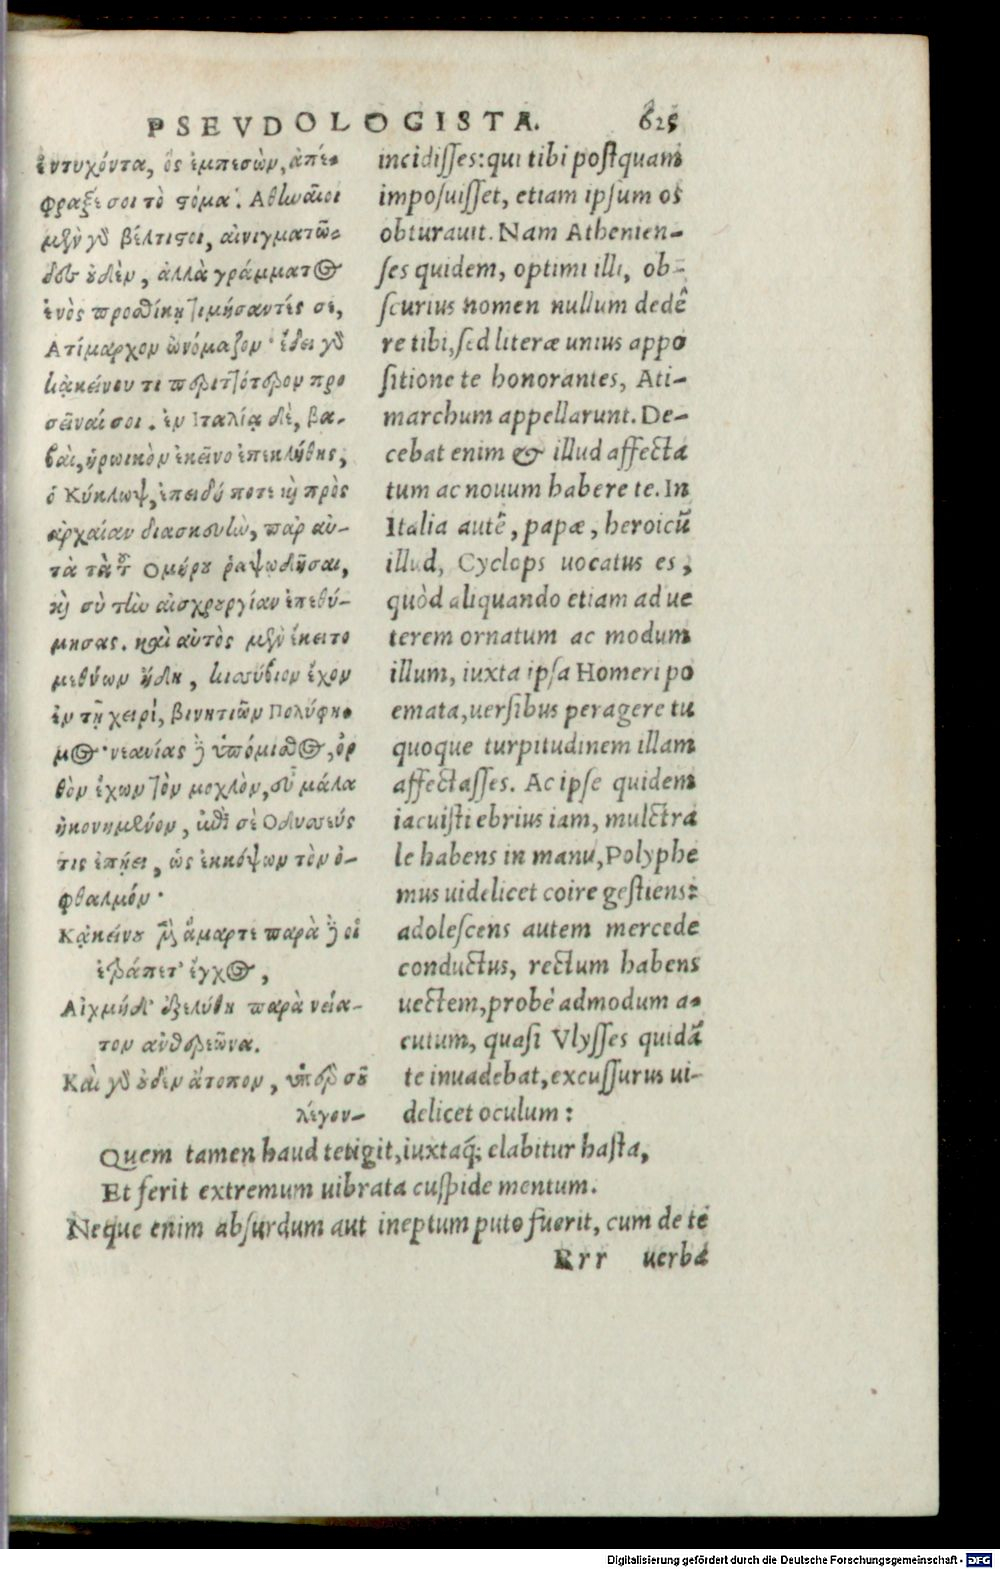 PSEVDOLOGISTA. 625
ἐντυχόντα, ὃς ἐμπεσὼν, ἀπέ-
φραξέ σοι τὸ στόμα. Αθηναῖοι
μὲν γὸ βέλτιστοι, αἰνιγματῶ-
δες οὐδὲν, ἀλλὰ γράμματος
ἑνὸς προσθήκῃ τιμήσαντές σε,
Ατίμαρχον ὠνόμαζον· ἔδει γὸ
κἀκείνου τι περιττότερον προ
σεῖναί σοι. ἐν Ιταλίᾳ δὲ, βα-
βαὶ, ἡρωικὸν ἐκεῖνο ἐπεκλήθης,
ὁ Κύκλωψ, ἐπειδή ποτε καὶ πρὸς
ἀρχαίαν διασκευὴν, παρ αὐ-
τὰ τὰ τοῦ Ομήρου ῥαψωδῆσαι,
καὶ σὺ τὴν αἰσχρουργίαν ἐπεθύ-
μησας. καὶ αὐτὸς μὲν ἔκειτο
μεθύων ἤδη, κισσύβιον ἔχον
ἐν τῇ χειρὶ, βινητιῶν Πολύφη-
μος· νεανίας δὲ ὑπόμισθος, ὀρ
θὸν ἔχων τὸν μοχλὸν, εὖ μάλα
ἠκονημένον, ἐπὶ σὲ Οδυσσεύς
τις ἐπῄει, ὡς ἐκκόψων τὸν ὀ-
φθαλμόν·
Κἀκείνου μὲν ἅμαρτε παρὰ δέ οἱ
ἐτράπετ' ἔγχος,
Αἰχμὴ δ' ἐξελύθη παρὰ νεία-
τον ἀνθερεῶνα.
Καὶ γὸ οὐδὲν ἄτοπον, ὑπὲρ σοῦ
λέγον-
incidisses: qui tibi postquam
imposuisset, etiam ipsum os
obturauit. Nam Athenien-
ses quidem, optimi illi, ob-
scurius nomen nullum dedê
re tibi, sed literæ unius appo
sitione te honorantes, Ati-
marchum appellarunt. De-
cebat enim & illud affecta
tum ac nouum habere te. In
Italia autē, papæ, heroicū
illud, Cyclops uocatus es;
quòd aliquando etiam ad ue
terem ornatum ac modum
illum, iuxta ipsa Homeri po
emata, uersibus peragere tu
quoque turpitudinem illam
affectasses. Ac ipse quidem
iacuisti ebrius iam, mulctra
le habens in manu, Polyphe
mus uidelicet coire gestiens:
adolescens autem mercede
conductus, rectum habens
uectem, probè admodum a-
cutum, quasi Vlysses quidā
te inuadebat, excussurus ui-
delicet oculum:
Quem tamen haud tetigit, iuxtaq; elabitur hasta,
Et ferit extremum uibrata cuspide mentum.
Neque enim absurdum aut ineptum puto fuerit, cum de te
Rrr uerba
Digitalisierung gefördert durch die Deutsche Forschungsgemeinschaft - DFG